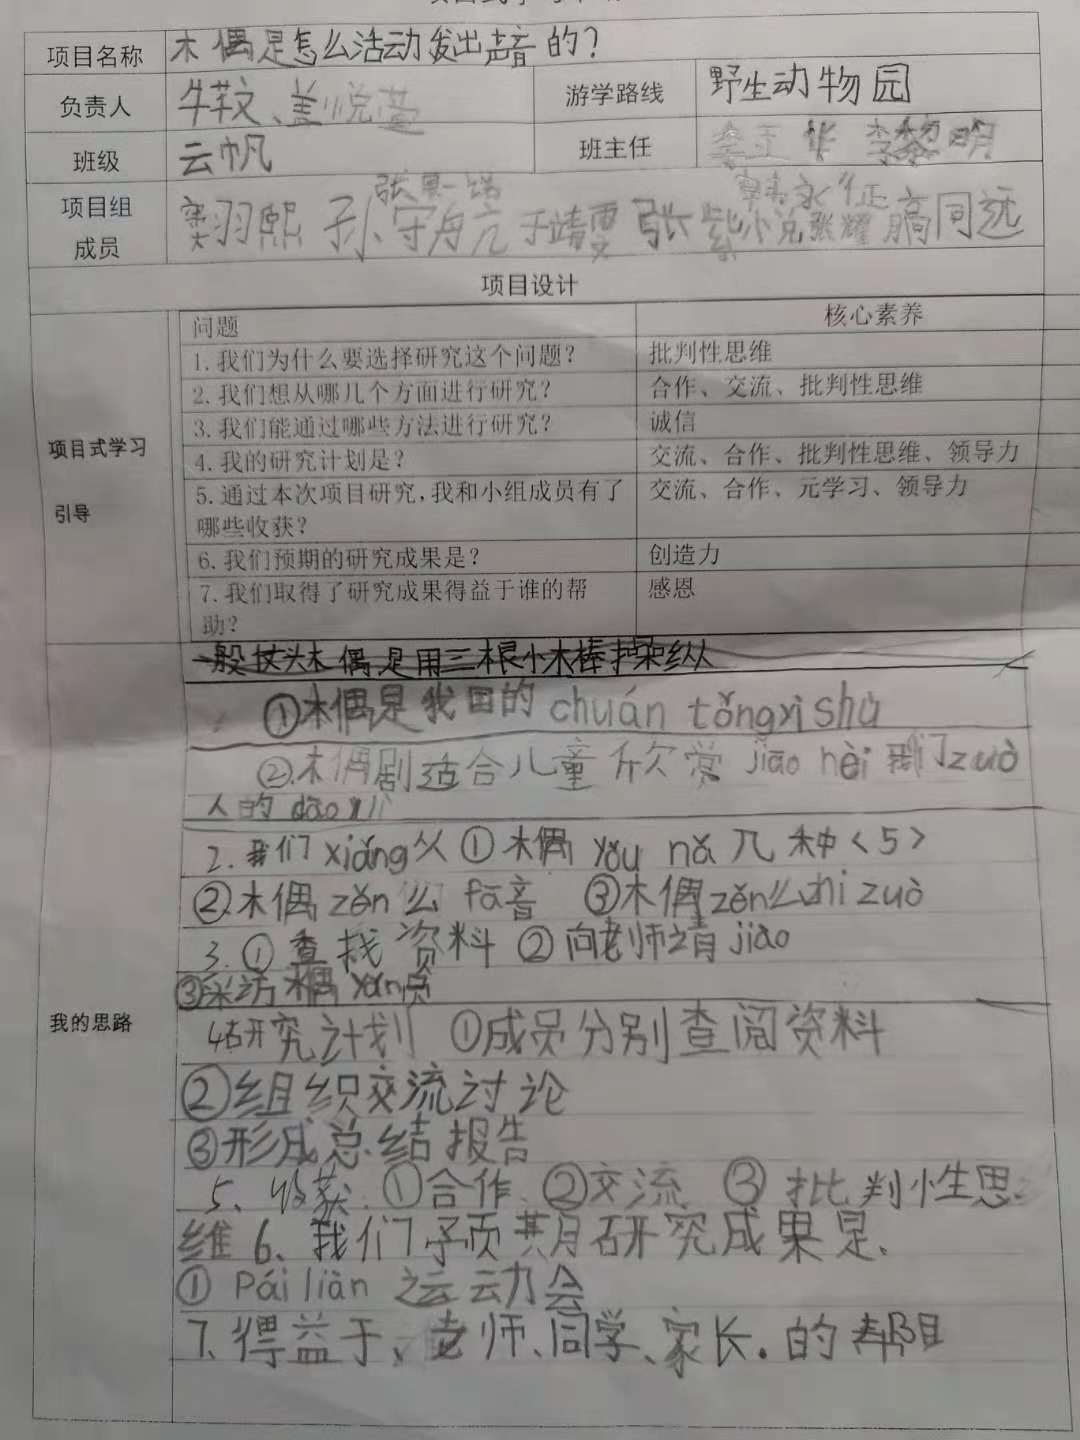 项目名称 木偶是怎么活动发出声音的?
负责人 牛 文、盖悦萱 游学路线 野生动物园
班级 云帆 班主任 李玉华 李黎明
项目组
成员
羽熙 孙守舟亢 于靖雯 张紫 永征 耀 同远
项目设计
问题 核心素养
1. 我们为什么要选择研究这个问题? 批判性思维
2. 我们想从哪几个方面进行研究? 合作、交流、批判性思维
3. 我们能通过哪些方法进行研究? 诚信
项目式学习
引导
4. 我的研究计划是? 交流、合作、批判性思维、领导力
5. 通过本次项目研究,我和小组成员有了 交流、合作、元学习、领导力
哪些收获?
6. 我们预期的研究成果是? 创造力
7. 我们取得了研究成果得益于谁的帮 感恩
助?
一般杖头木偶是用三根小木棒操纵
①木偶是我国的chuán tǒngyì shù
②.木偶剧适合儿童欣赏 jiāo hèi 我们zuò
人的dào lǐ
2. 我们xiǎng从①木偶 yǒu nǎ几种<5>
②.木偶zěn么fā音 ③木偶zěn么zhì zuò
3. ①查找资料 ②向老师请jiào
③采访木偶yǎn员
我的思路
4研究计划 ①成员分别查阅资料
②组织交流讨论
③形成总结报告
5、收获.①合作、②交流 ③批判性思
维 6、我们预期研究成果是、
① Pái liàn 运动会
7.得益于、老师、同学、家长.的帮助